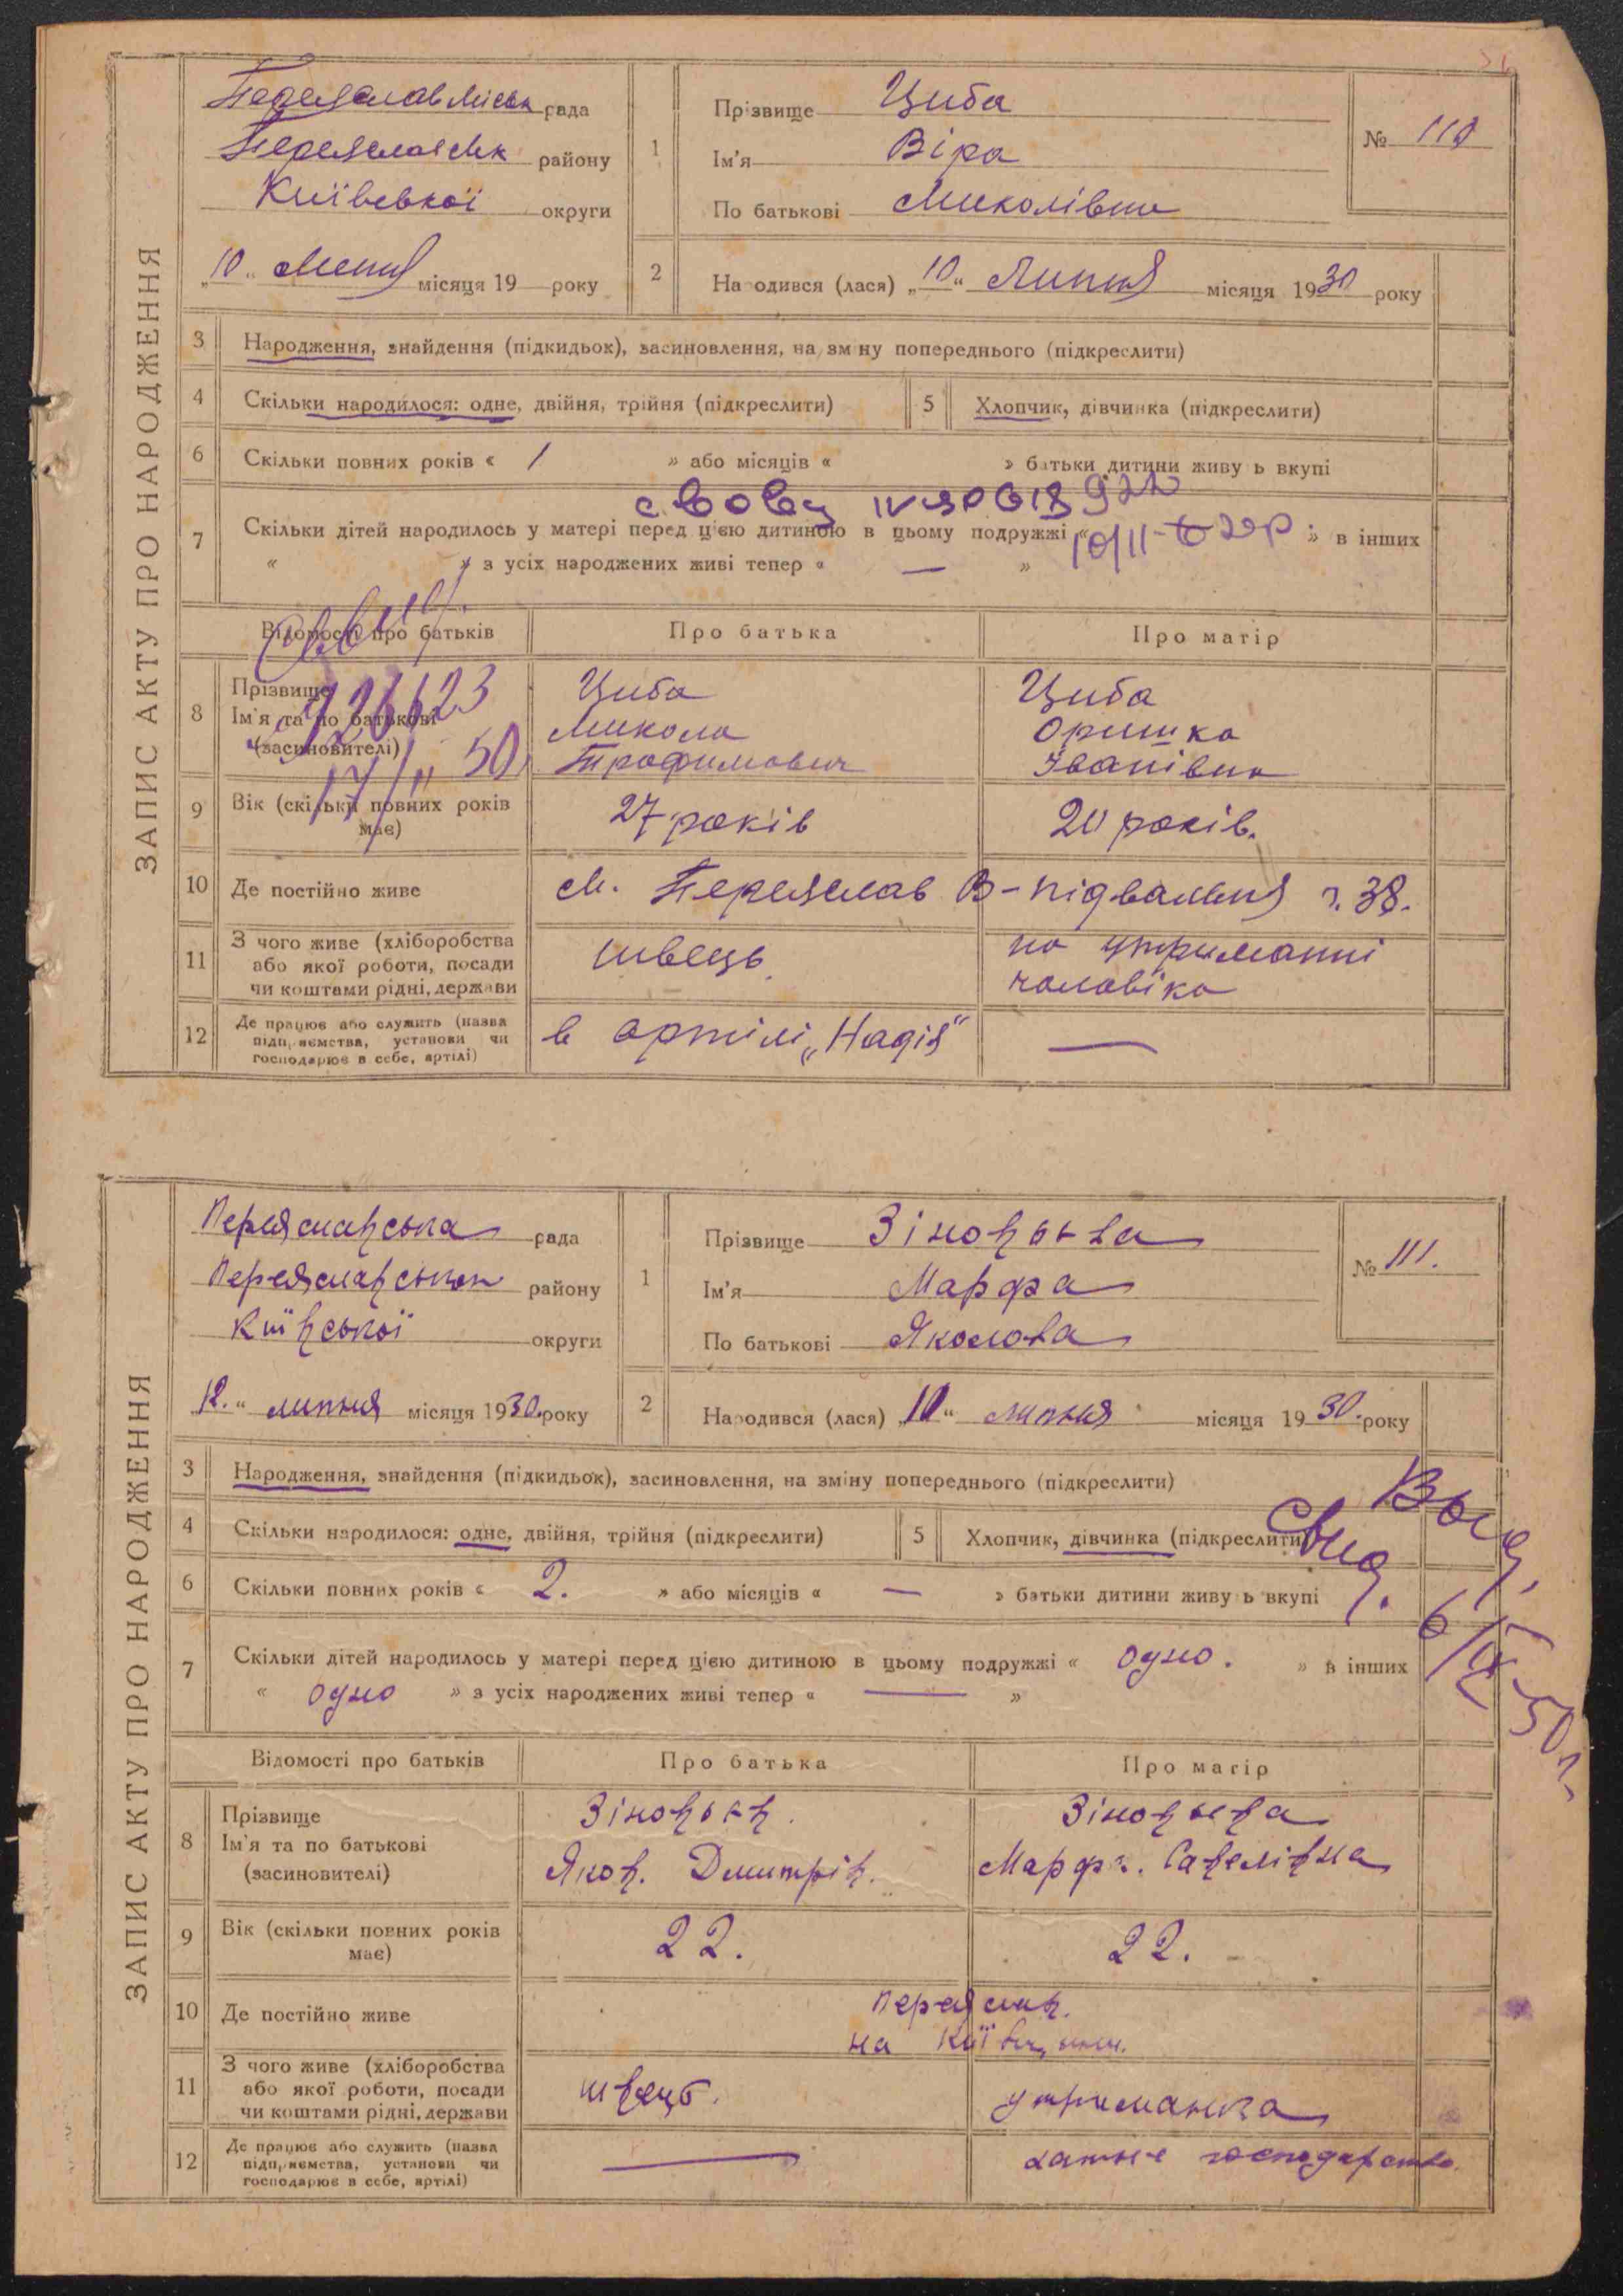 ЗАПИС АКТУ ПРО НАРОДЖЕННЯ
Переяслав міськ рада
Переяславськ району
Київської округи
"10" липня місяця 19 року
1
Прізвище Циба
Ім'я Віра
По батькові Миколівна
№ 110
2
Народився (лася) "10" Липня місяця 1930 року
3 Народження, знайдення (підкидьок), засиновлення, на зміну попереднього (підкреслити)
4 Скільки народилося: одне, двійня, трійня (підкреслити)
5 Хлопчик, дівчинка (підкреслити)
6 Скільки повних років « 1 » або місяців « » батьки дитини живуть вкупі
7 Скільки дітей народилось у матері перед цією дитиною в цьому подружжі « » в інших
« » з усіх народжених живі тепер « — »
Відомості про батьків
Про батька
Про матір
8 Прізвище
Ім'я та по батькові
(засиновителі)
Циба
Микола
Трофимович
Циба
Оришка
Іванівна
17/II 50
9 Вік (скільки повних років має)
27 років
20 років.
10 Де постійно живе
м. Переяслав В-підвальня 38.
11 З чого живе (хліборобства
або якої роботи, посади
чи коштами рідні, держави
швець
на утриманні
чоловіка
12 Де працює або служить (назва
підприємства, установи чи
господарює в себе, артілі)
в артілі „Надія"
—
ЗАПИС АКТУ ПРО НАРОДЖЕННЯ
Переяславська рада
Переяславськои району
Київської округи
"12." липня місяця 1930. року
1
Прізвище Зіновьєва
Ім'я Марфа
По батькові Яковова
№ 111.
2
Народився (лася) "10" липня місяця 1930. року
3 Народження, знайдення (підкидьок), засиновлення, на зміну попереднього (підкреслити)
4 Скільки народилося: одне, двійня, трійня (підкреслити)
5 Хлопчик, дівчинка (підкреслити)
6 Скільки повних років « 2. » або місяців « — » батьки дитини живуть вкупі
7 Скільки дітей народилось у матері перед цією дитиною в цьому подружжі « одно. » в інших
« одно » з усіх народжених живі тепер « — »
Відомості про батьків
Про батька
Про матір
8 Прізвище
Ім'я та по батькові
(засиновителі)
Зіновьєв.
Яков. Дмитрів.
Зіновьєва
Марфа. Савелівна
9 Вік (скільки повних років має)
22.
22.
10 Де постійно живе
Переяслав.
на Київщині.
11 З чого живе (хліборобства
або якої роботи, посади
чи коштами рідні, держави
швець.
утриманка
12 Де працює або служить (назва
підприємства, установи чи
господарює в себе, артілі)
—
хатнє господарство.